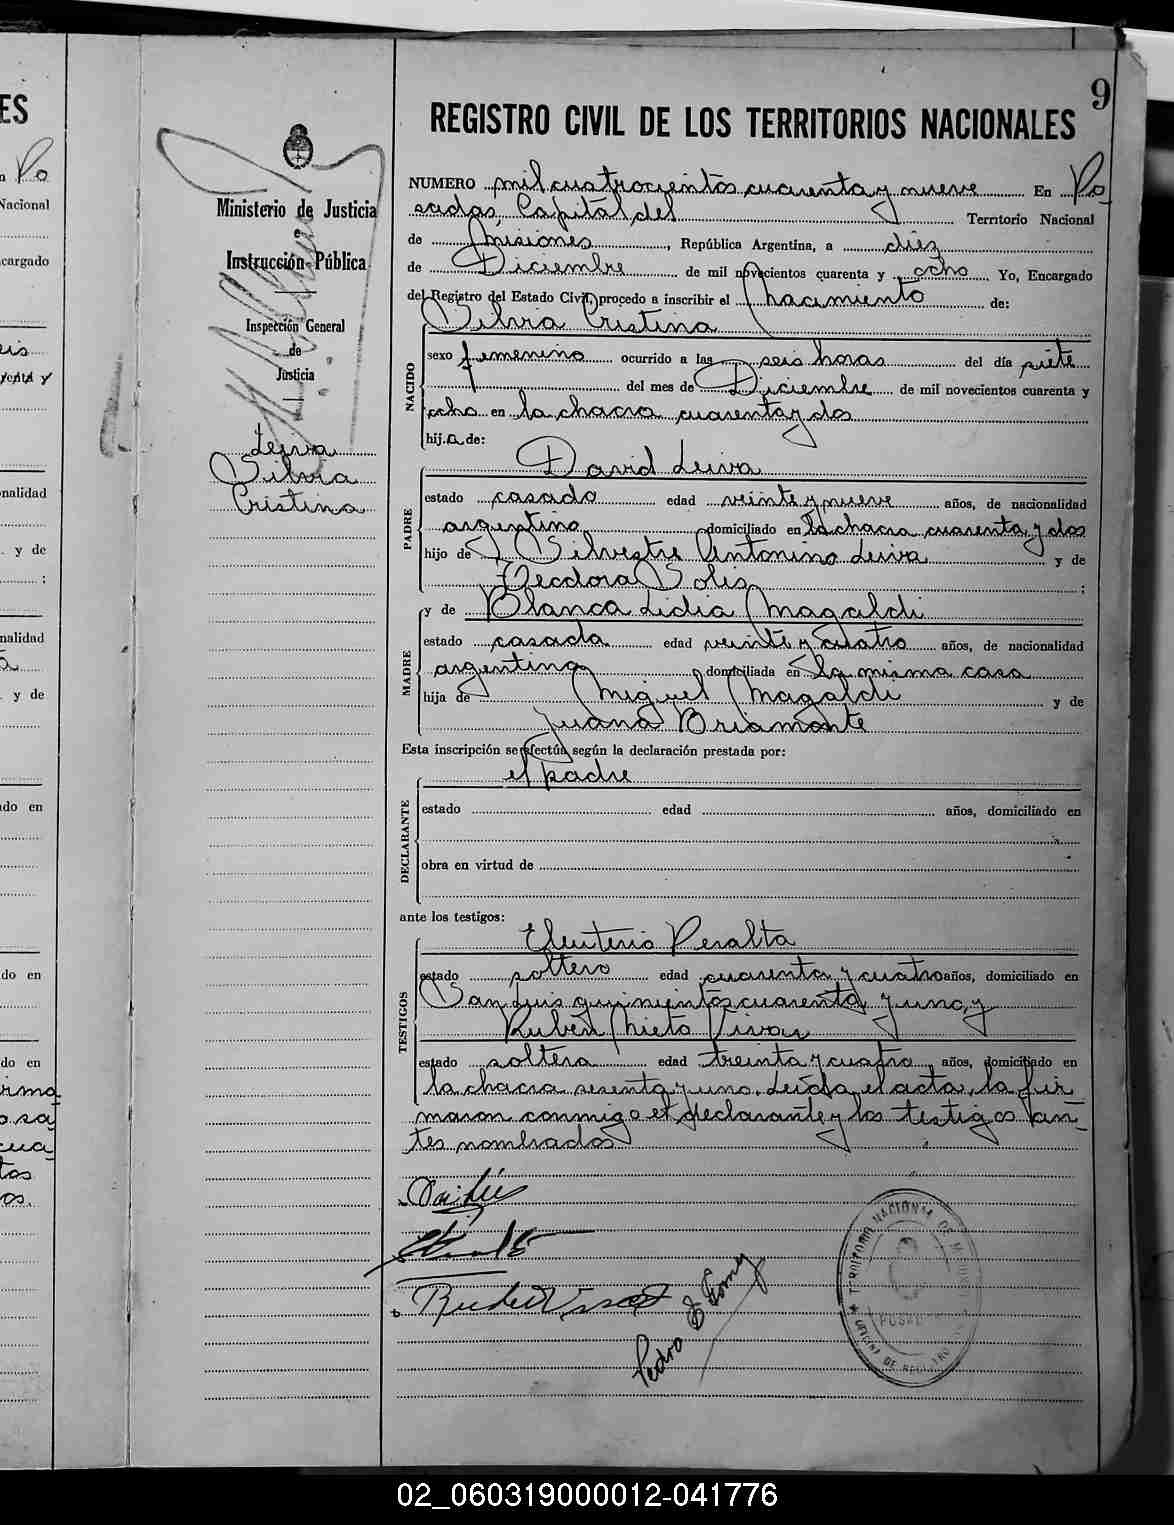 9
REGISTRO CIVIL DE LOS TERRITORIOS NACIONALES
Ministerio de Justicia
e
Instrucción Pública
Inspección General
de
Justicia
Leiva
Silvia
Cristina
NUMERO mil cuatrocientos cuarenta y nueve En Po-
sadas, Capital del Territorio Nacional
de Misiones, República Argentina, a diez
de Diciembre de mil novecientos cuarenta y ocho Yo, Encargado
del Registro del Estado Civil, procedo a inscribir el Nacimiento de:
Silvia Cristina
NACIDO
sexo femenino ocurrido a las seis horas del día siete
del mes de Diciembre de mil novecientos cuarenta y
ocho en la chacra cuarenta y dos
hij.a de:
David Leiva
PADRE
estado casado edad veinte y nueve años, de nacionalidad
argentino domiciliado en la chacra cuarenta y dos
hijo de Silvestre Antonino Leiva y de
Teodora Solis ;
y de Blanca Lidia Magaldi
MADRE
estado casada edad veinte y cuatro años, de nacionalidad
argentina domiciliada en la misma casa
hija de Miguel Magaldi y de
Juana Briamonte
Esta inscripción se efectúa según la declaración prestada por:
el padre
DECLARANTE
estado edad años, domiciliado en
obra en virtud de
ante los testigos:
Eleuterio Peralta
TESTIGOS
estado soltero edad cuarenta y cuatro años, domiciliado en
San Luis quinientos cuarenta y uno, y
Ruben Nieto Vivar
estado soltero edad treinta y cuatro años, domiciliado en
la chacra sesenta y uno. Leída el acta, la fir-
maron conmigo el declarante y los testigos an-
tes nombrados
Pedro E Gomez
TERRITORIO NACIONAL DE MISIONES
OFICINA DE REGISTRO
02_060319000012-041776